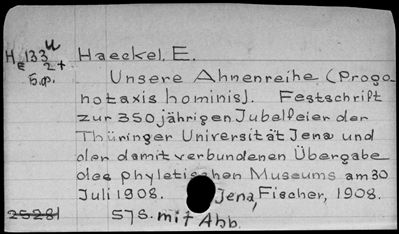 He 133 u
2+
Б.ф.
Haeckel, E.
Unsere Ahnenreihe (Progo-
notaxis hominis). Festschrift
zur 350jährigen Jubelfeier der
Thüringer Universität Jena und
der damit verbundenen Übergabe
des phyletischen Museums am 30
Juli 1908. Jena, Fischer, 1908.
25281 57S. mit Abb.